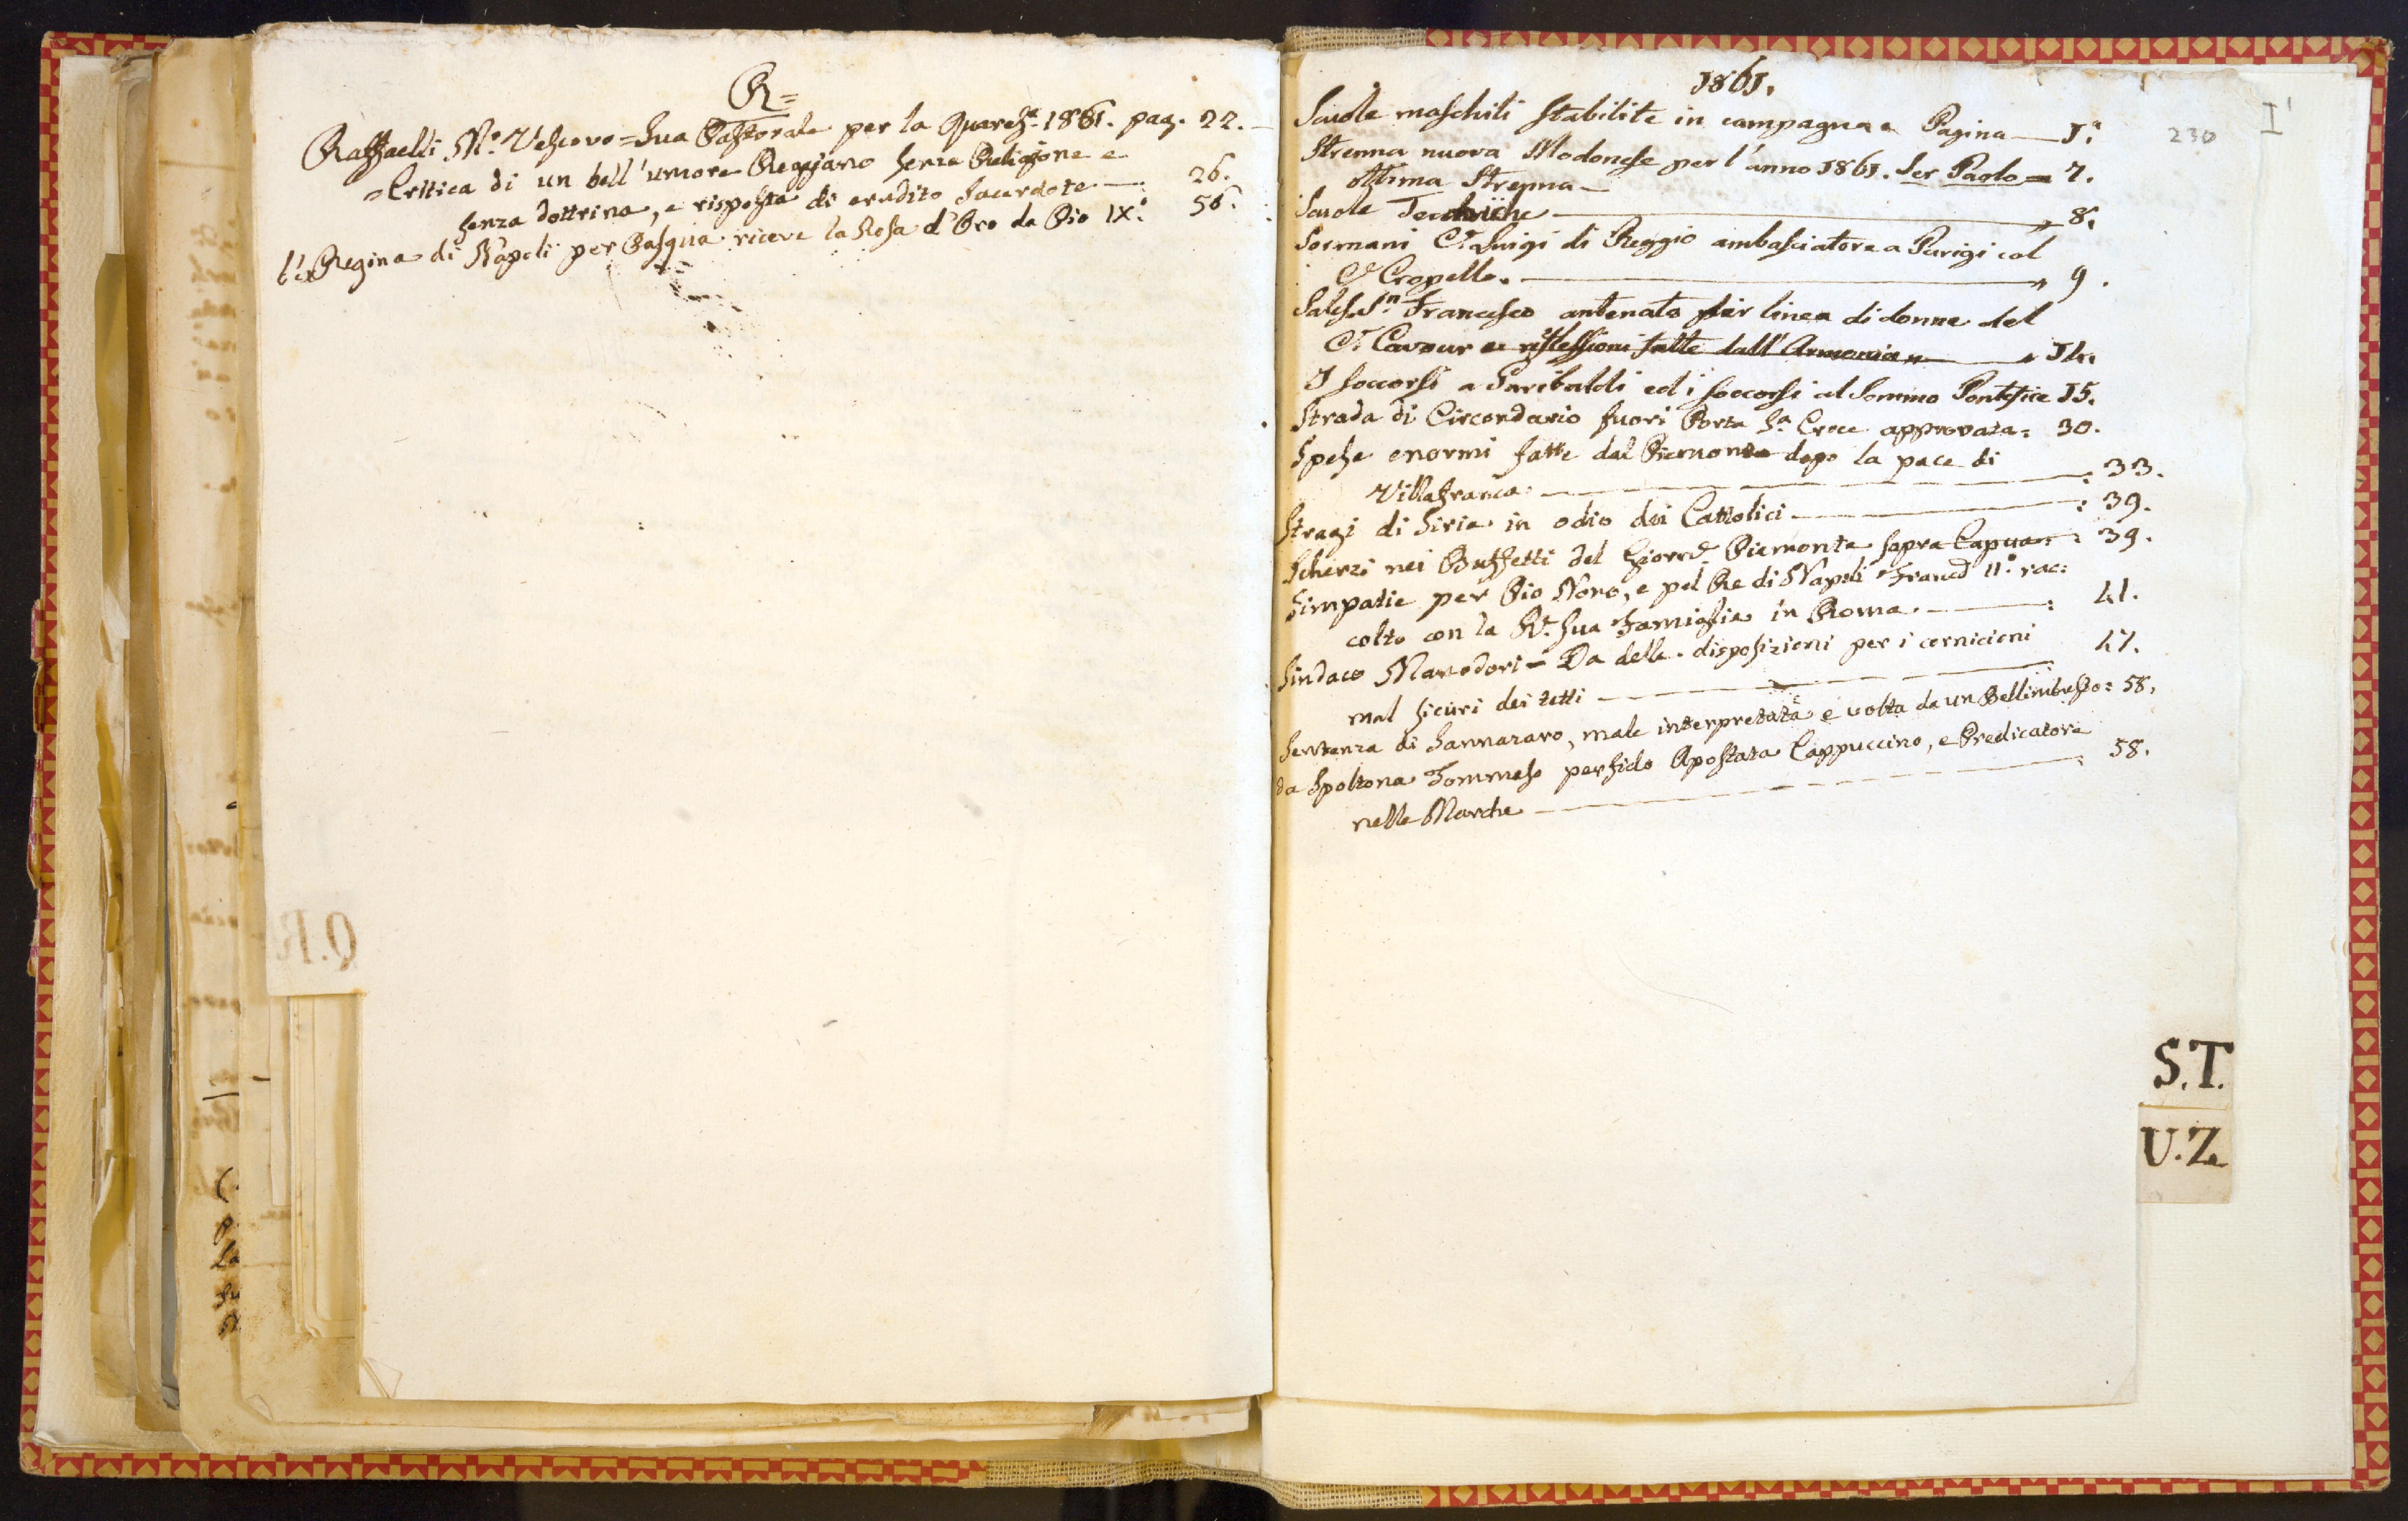 R=
Raffaelli Mr. Vescovo = Sua Pastorale per la Quaresa. 1861. pag. 22.
= Critica di un bell'umore Reggiano senza Religione e
senza dottrina, e risposta di erudito Sacerdote — : 26.
l'ex Regina di Napoli per Pasqua riceve la Rosa d'Oro da Pio IX.° 56.
Q.R
1861.
230
I
Scuole maschili stabilite in campagna = Pagina — 1.a
Strenna nuova Modonese per l'anno 1861. Ser Paolo = 7.
ottima Strenna —
Scuole Tecniche — „ 8.
Sormani Ct. Luigi di Reggio ambasciatore a Parigi col
Ct. Cropello. — „ 9.
Sales Sn. Francesco antenato per linea di donne del
Ct. Cavour e riflessioni fatte dall'Armonia „ — „ 14.
I soccorsi a Garibaldi ed i soccorsi al Sommo Pontefice 15.
Strada di Circondario fuori Porta Sa. Croce approvata = 30.
Spese enormi fatte dal Piemonte dopo la pace di
Villafranca : — : 33.
Stragi di Siria in odio dei Cattolici — : 39.
Scherzi nei Buffetti del Giorle. Piemonte sopra Capua = : 39.
Simpatie per Pio Nono, e pel Re di Napoli Franco II.° rac=
colto con la Rl. sua Famiglia in Roma. — : 41.
Sindaco Manodori = Da delle disposizioni per i cornicioni
mal sicuri dei tetti — 47.
Sentenza di Sannazaro, male interpretata e volta da un Bellimbusto : 58.
da Spoltona Tommaso perfido Apostata Cappuccino, e Predicatore
nelle Marche — : 58.
S.T.
U.Z.